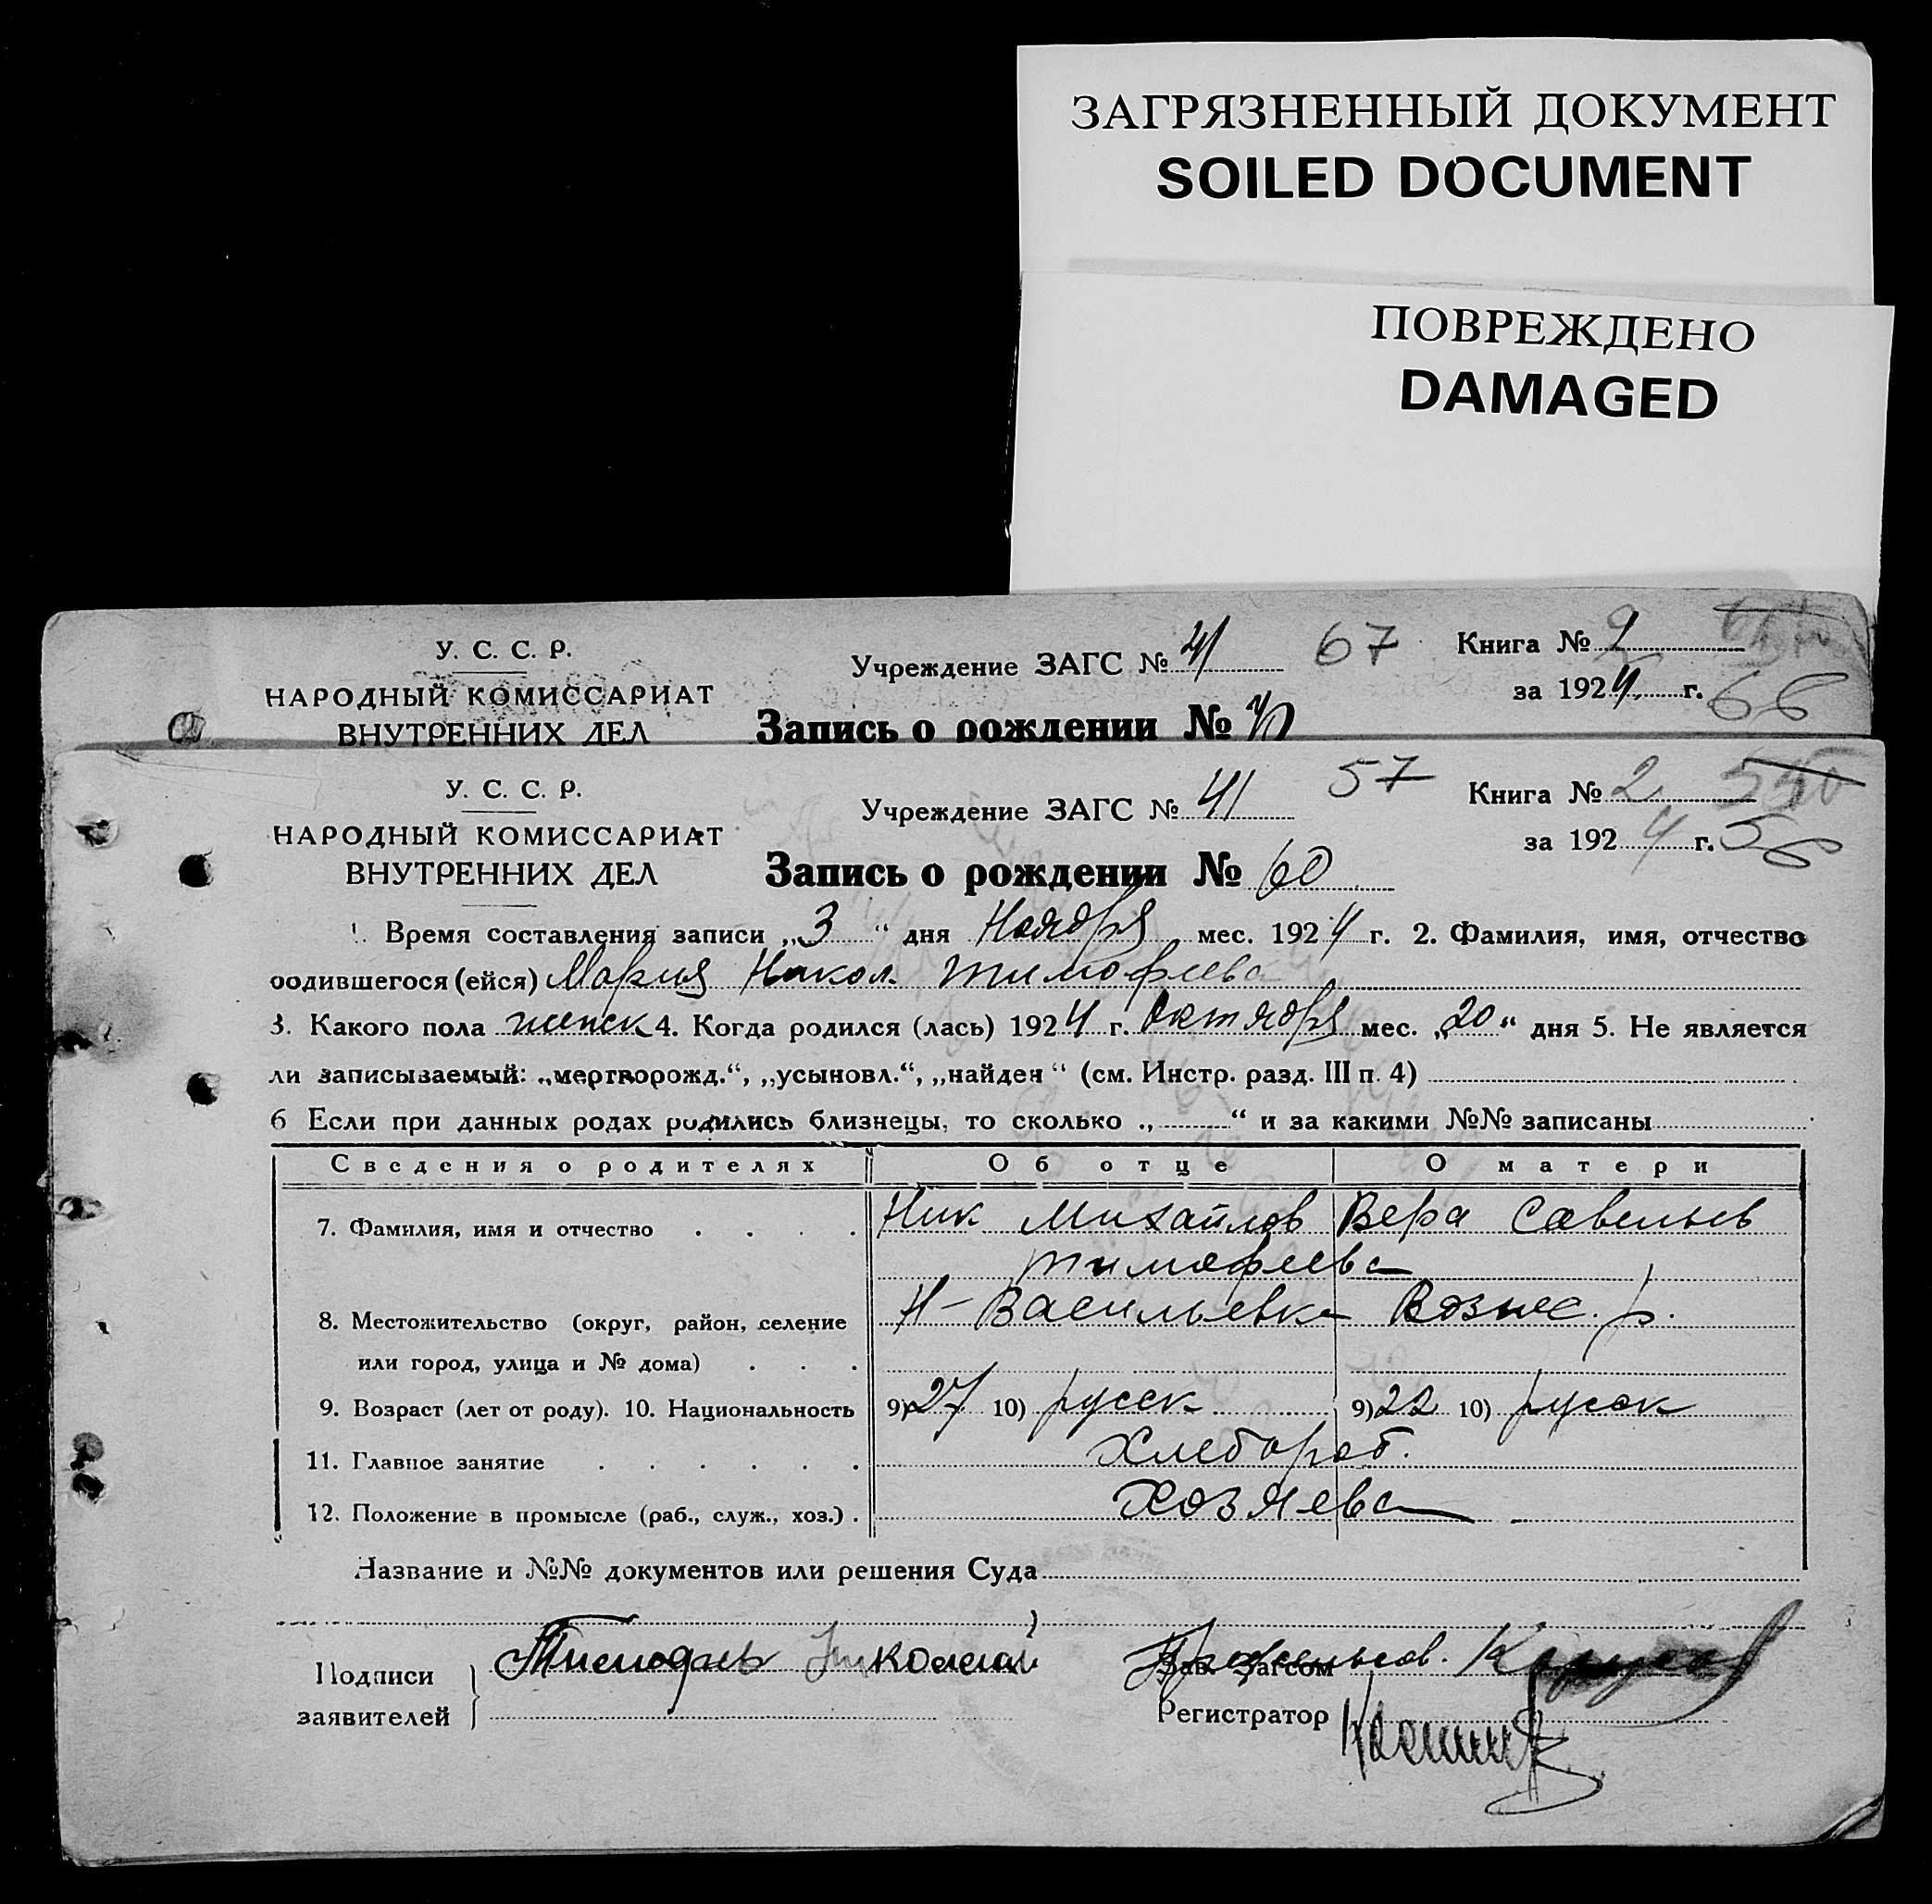 ЗАГРЯЗНЕННЫЙ ДОКУМЕНТ
SOILED DOCUMENT
ПОВРЕЖДЕНО
DAMAGED
У. С. С. Р.
НАРОДНЫЙ КОМИССАРИАТ
ВНУТРЕННИХ ДЕЛ
Учреждение ЗАГС № 41 67
Книга № 2
за 1924 г. 66
Запись о рождении №
У. С. С. Р.
НАРОДНЫЙ КОМИССАРИАТ
ВНУТРЕННИХ ДЕЛ
Учреждение ЗАГС № 41 57
Книга № 2
за 1924 г. 56
Запись о рождении № 60
1. Время составления записи „3“ дня Ноября мес. 1924 г. 2. Фамилия, имя, отчество
родившегося (ейся) Мария Никол. Тимофеева
3. Какого пола женск 4. Когда родился (лась) 1924 г. Октября мес. „20“ дня 5. Не является
ли записываемый: „мертворожд.“, „усыновл.“, „найден“ (см. Инстр. разд. III п. 4)
6 Если при данных родах родились близнецы, то сколько „ “ и за какими №№ записаны
Сведения о родителях Об отце О матери
7. Фамилия, имя и отчество Ник Михайлов Вера Савельев
Тимофеева
8. Местожительство (округ, район, селение Н-Васильевка Вознес. р.
или город, улица и № дома)
9. Возраст (лет от роду). 10. Национальность 9) 27 10) русск 9) 22 10) русск
11. Главное занятие Хлебороб.
12. Положение в промысле (раб., служ., хоз.) Хозяева
Название и №№ документов или решения Суда
Подписи
заявителей
Тимофеев Николай
Зав. Загсом
Регистратор